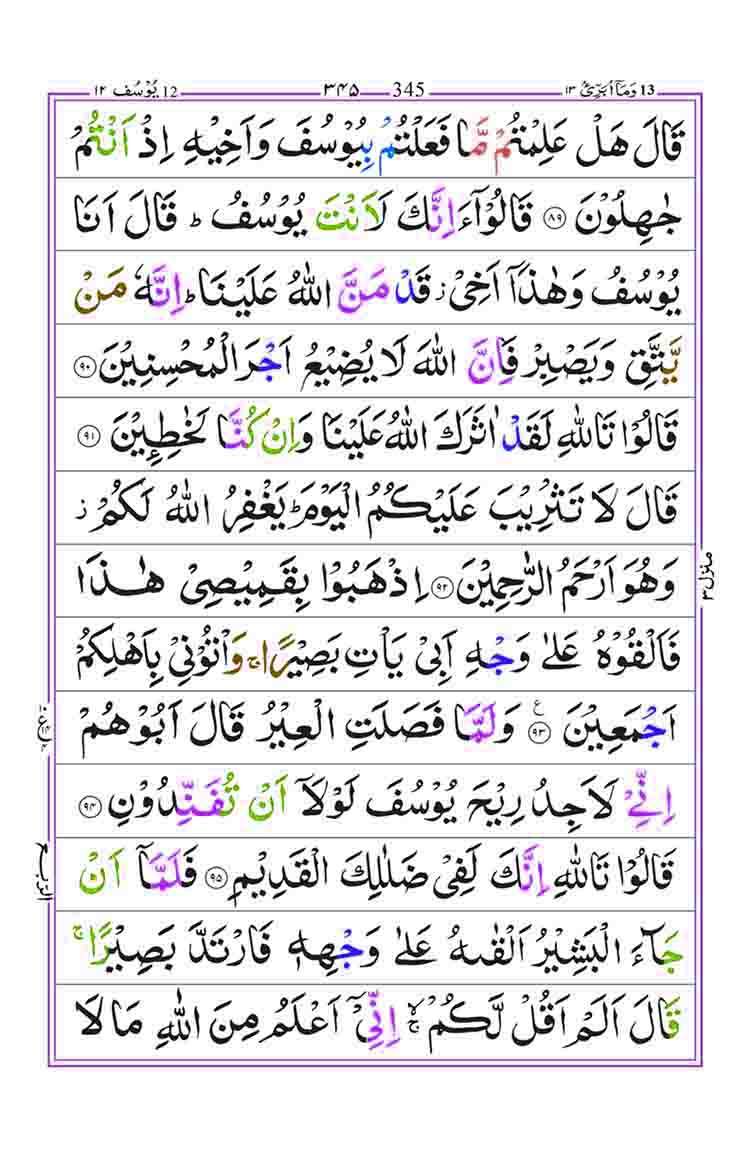 13 وَمَاۤ اُبَرِّئُ ۱۳ 345 ۳۴۵ 12 يُوْسُف ۱۲
قَالَ هَلْ عَلِمْتُمْ مَّا فَعَلْتُمْ بِيُوْسُفَ وَاَخِيْهِ اِذْ اَنْتُمْ
جٰهِلُوْنَ ۸۹ قَالُوْۤا ءَاِنَّكَ لَاَنْتَ يُوْسُفُ ؕ قَالَ اَنَا
يُوْسُفُ وَهٰذَاۤ اَخِيْ ز قَدْ مَنَّ اللّٰهُ عَلَيْنَا ؕ اِنَّهٗ مَنْ
يَّتَّقِ وَيَصْبِرْ فَاِنَّ اللّٰهَ لَا يُضِيْعُ اَجْرَ الْمُحْسِنِيْنَ ۹۰
قَالُوْا تَاللّٰهِ لَقَدْ اٰثَرَكَ اللّٰهُ عَلَيْنَا وَاِنْ كُنَّا لَخٰطِـِٕيْنَ ۹۱
قَالَ لَا تَثْرِيْبَ عَلَيْكُمُ الْيَوْمَ ؕ يَغْفِرُ اللّٰهُ لَكُمْ ز
وَهُوَ اَرْحَمُ الرّٰحِمِيْنَ ۹۲ اِذْهَبُوْا بِقَمِيْصِيْ هٰذَا
فَاَلْقُوْهُ عَلٰى وَجْهِ اَبِيْ يَاْتِ بَصِيْرًا ۚ وَاْتُوْنِيْ بِاَهْلِكُمْ
اَجْمَعِيْنَ ۹۳ ع وَلَمَّا فَصَلَتِ الْعِيْرُ قَالَ اَبُوْهُمْ
اِنِّيْ لَاَجِدُ رِيْحَ يُوْسُفَ لَوْلَاۤ اَنْ تُفَنِّدُوْنِ ۹۴
قَالُوْا تَاللّٰهِ اِنَّكَ لَفِيْ ضَلٰلِكَ الْقَدِيْمِ ۹۵ فَلَمَّاۤ اَنْ
جَآءَ الْبَشِيْرُ اَلْقٰىهُ عَلٰى وَجْهِهٖ فَارْتَدَّ بَصِيْرًا ۚ
قَالَ اَلَمْ اَقُلْ لَّكُمْ ۙۚ اِنِّيْۤ اَعْلَمُ مِنَ اللّٰهِ مَا لَا
منزل ۳
الربع